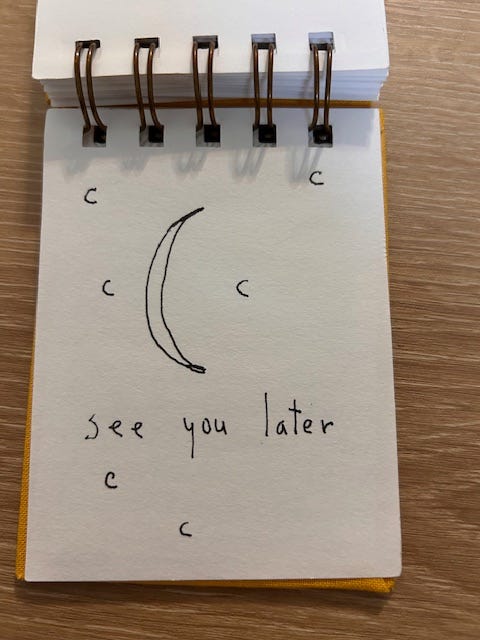 c
c
c
c
see you later
c
c